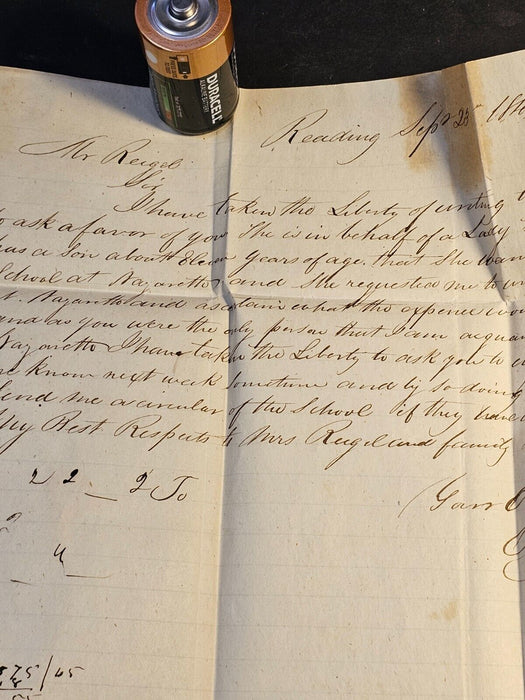 DURACELL
ALKALINE BATTERY
Reading Sept 25th 18
Mr Reigel
Sir
I have taken the Liberty of writing
to ask a favor of you She is in behalf of a Lady
has a Son about Eleven years of age. that She
School at Nazareth and She requested me to
at. Nazareth and ascertain what the expence
and as you were the only person that I am
Nazareth I have taken the Liberty to ask you to
me know next week Sometime and by so doing
Send me a circular of the School if they have
My Best Respects to Mrs Reigel and family
2 2 _ 2 To